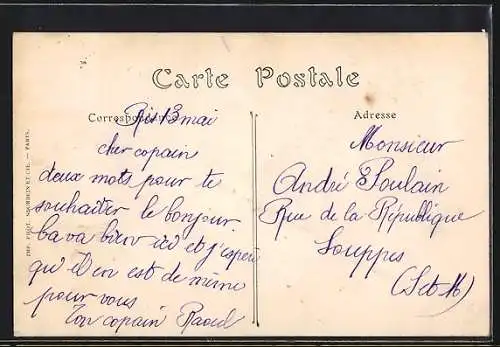 Carte Postale
Correspondance
Adresse
Ris 13 mai
cher copain
deux mots pour te
souhaiter le bonjour.
ba va bien ici et j'espère
qu'il en est de même
pour vous
Ton copain Raoul
Monsieur
André Poulain
Rue de la République
Souppes
(S et M)